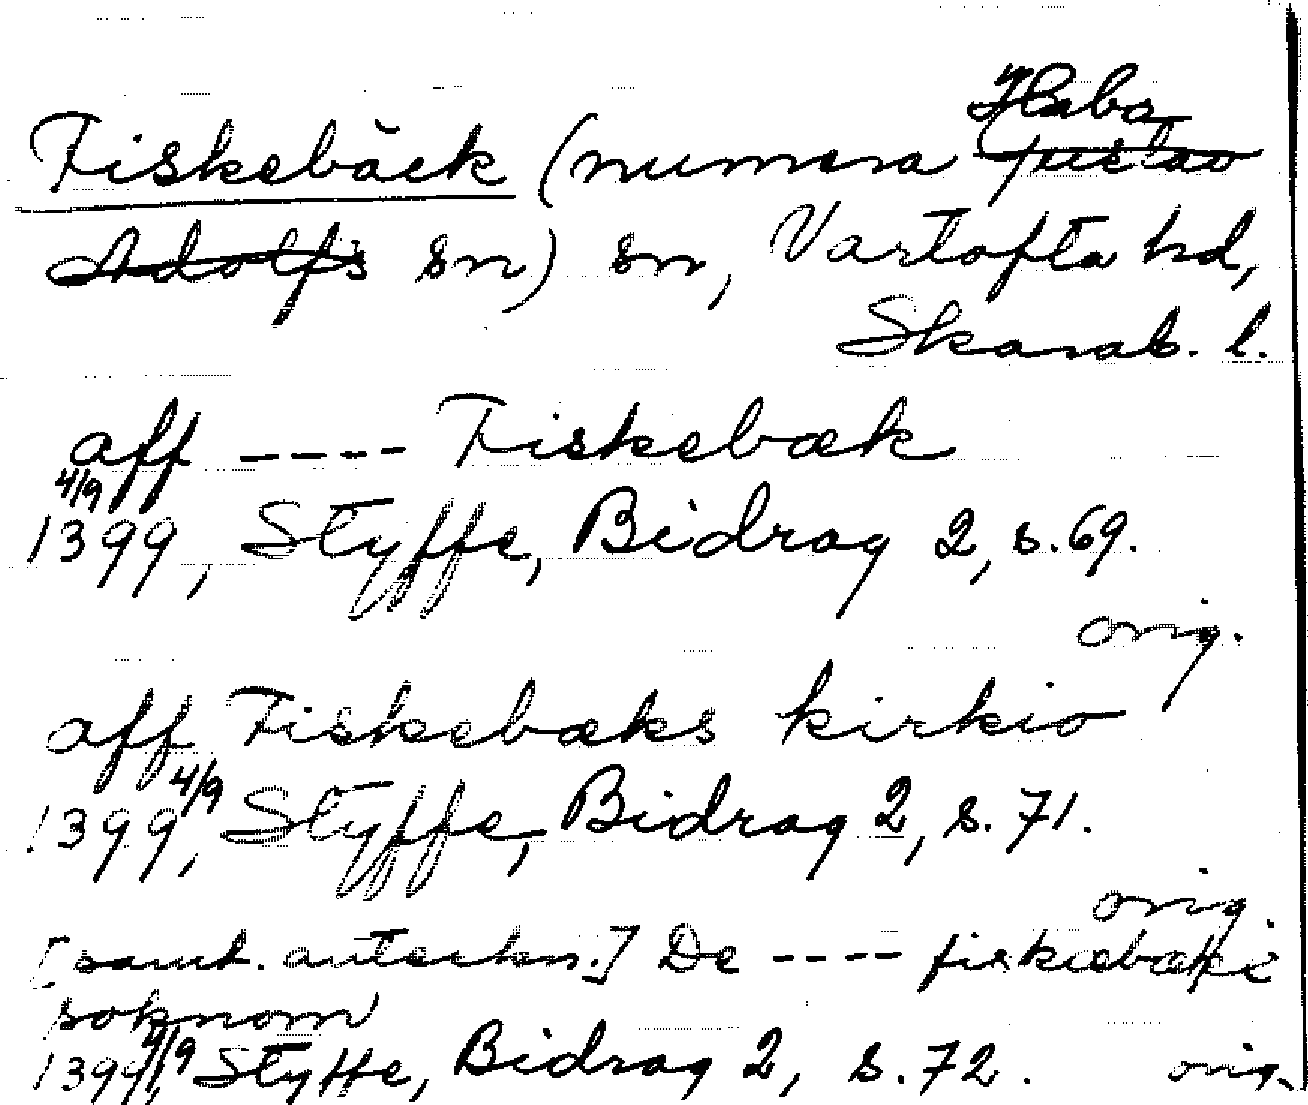 Habo
Fiskebäck (numera Gustav
Adolfs sn) sn, Vartofta hd,
Skarab. l.
aff ---- Fiskebæk
4/9
1399, Styffe, Bidrag 2, s. 69.
orig.
aff Fiskebæks kirkio
4/9
1399, Styffe, Bidrag 2, s. 71.
orig.
[samt. anteckn.] De ----
soknom
4/9
1399, Styffe, Bidrag 2, s. 72. orig.